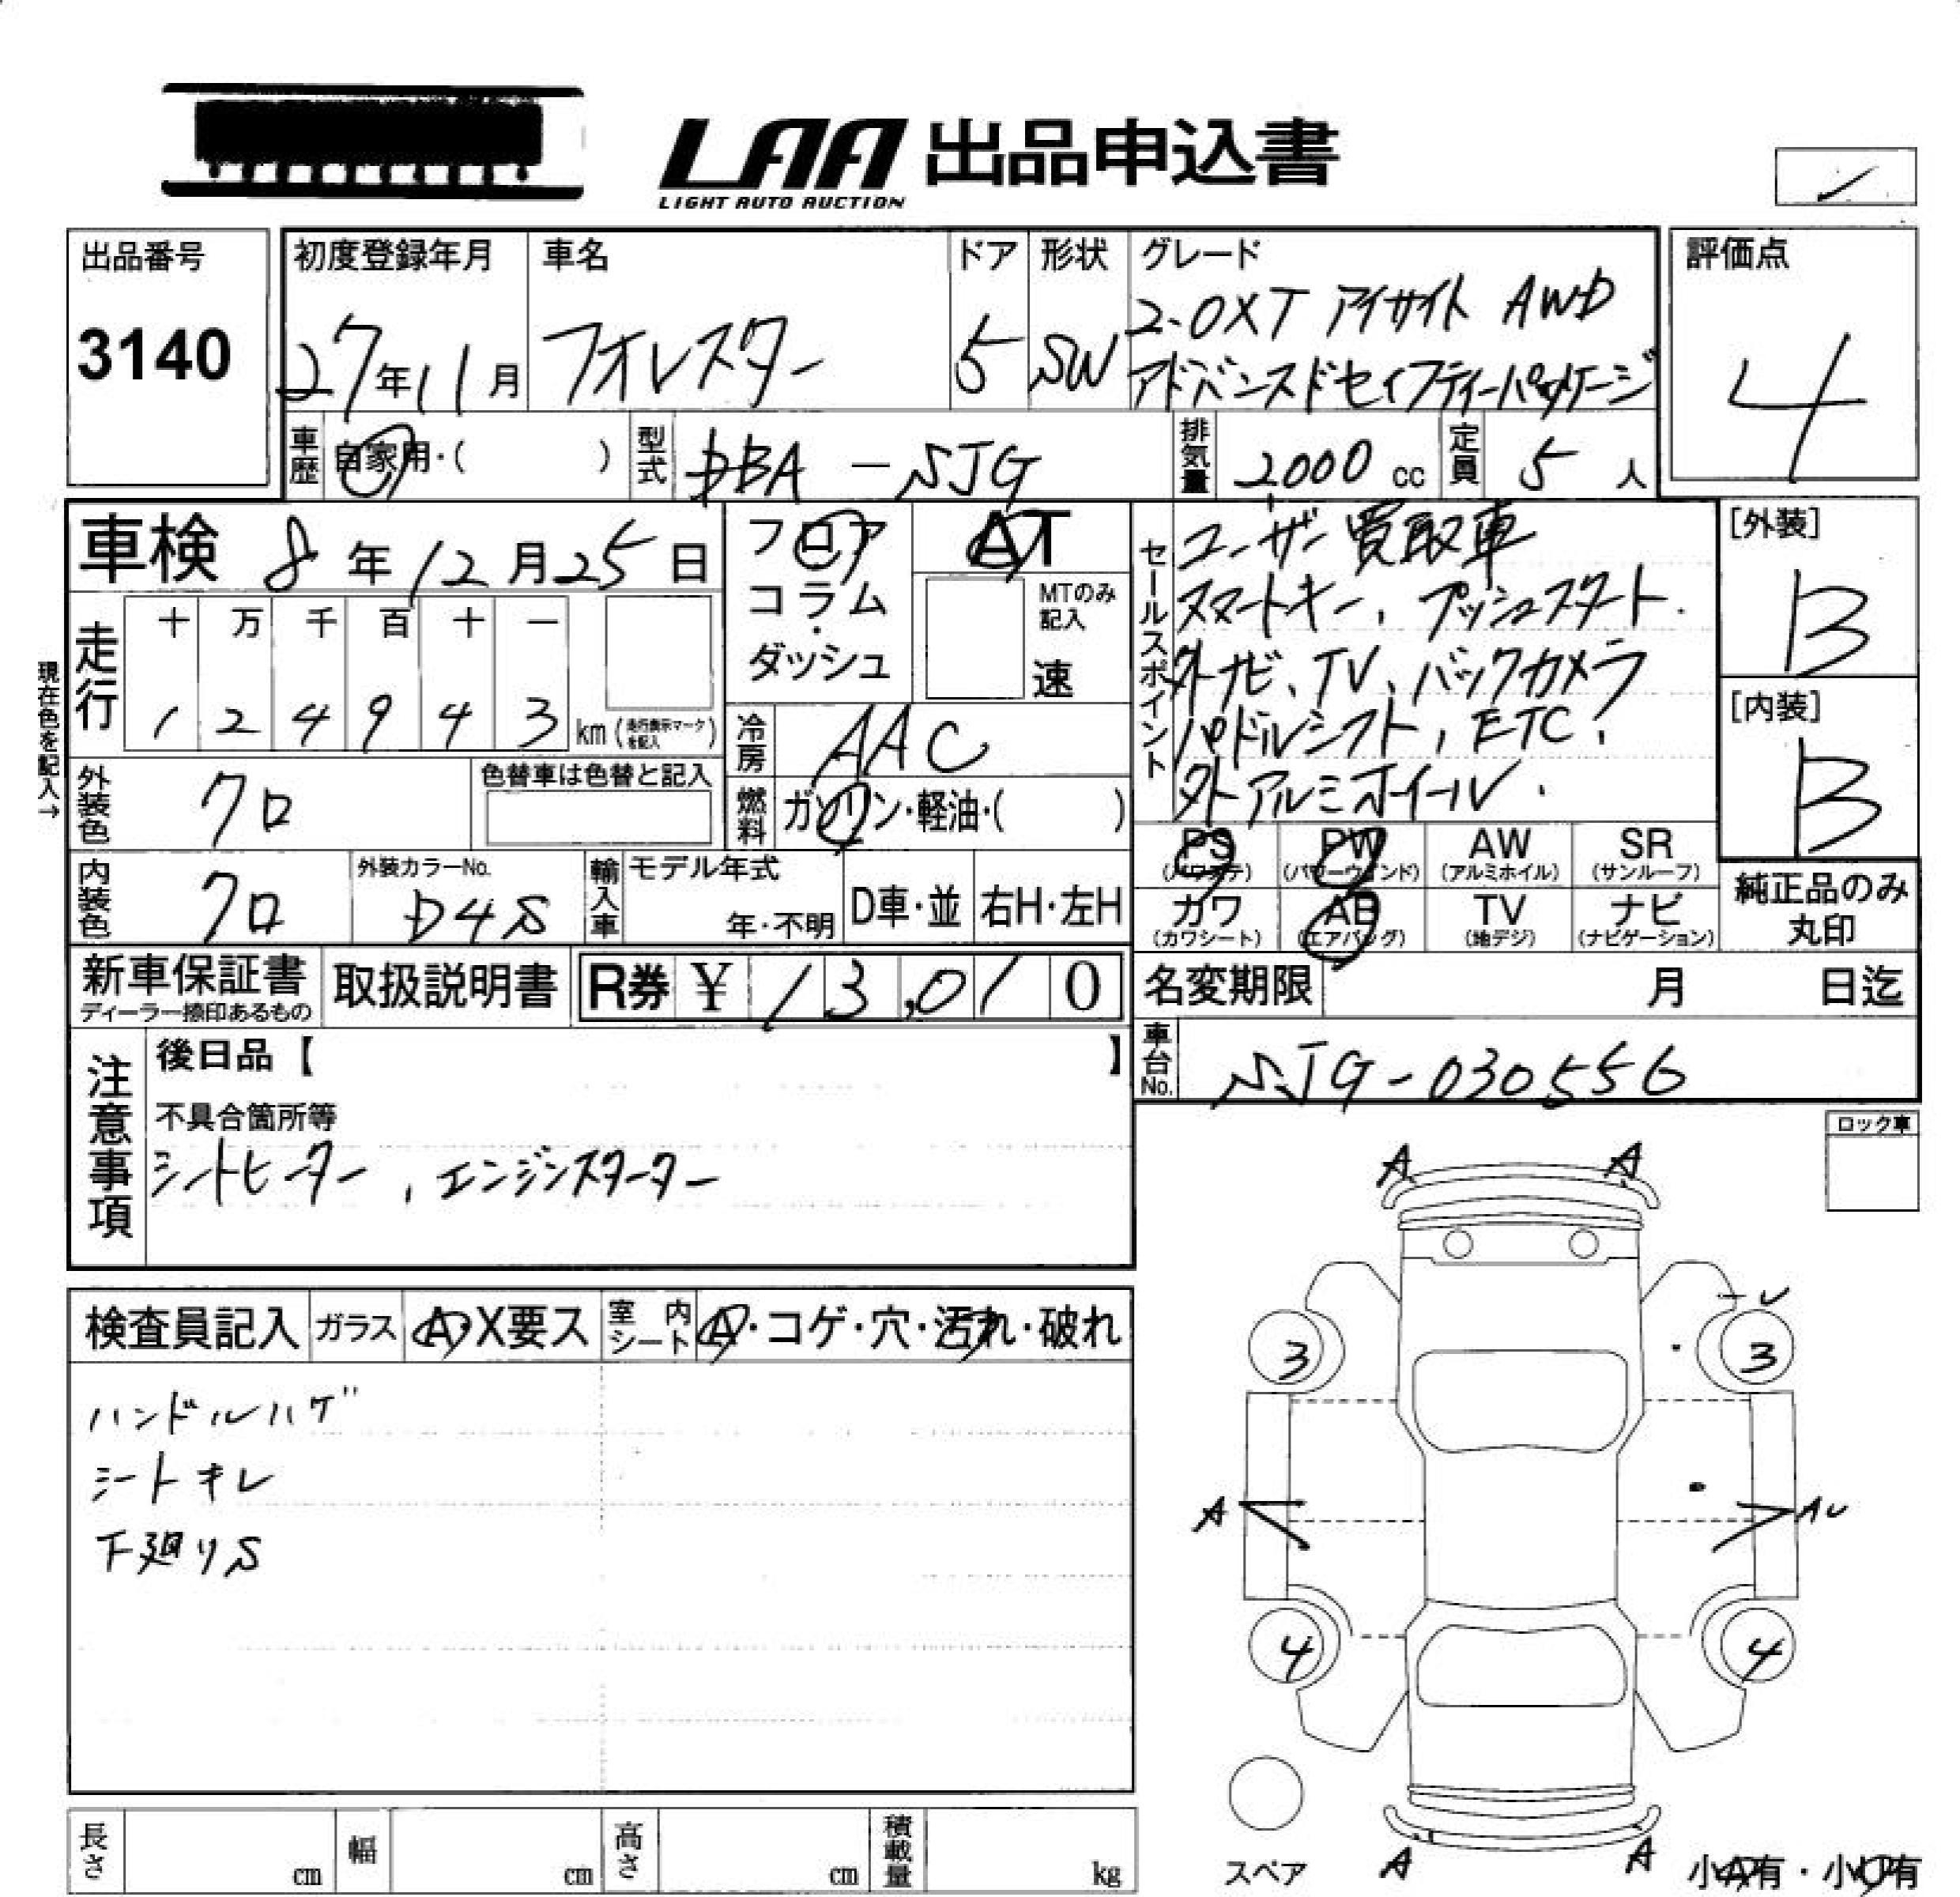 LAA 出品申込書
LIGHT AUTO AUCTION
出品番号
3140
初度登録年月
27年11月
車名
フォレスター
ドア
5
形状
SW
グレード
2.0XT アイサイト AWD
アドバンスドセイフティーパッケージ
評価点
4
車歴
自家用・( )
型式
DBA-SJG
排気量
2000cc
定員
5人
車検 8年12月25日
フロア
コラム・
ダッシュ
AT
MTのみ
記入
速
セールスポイント
ユーザー買取車
スマートキー、プッシュスタート.
外ナビ、TV、バックカメラ
パドルシフト、ETC、
外アルミホイール.
[外装]
B
[内装]
B
現在色を記入→
走行
十 万 千 百 十 一
1 2 4 9 4 3 km(走行表示マークを記入)
冷房
AAC
外装色
クロ
色替車は色替と記入
燃料
ガソリン・軽油・( )
内装色
クロ
外装カラーNo.
D4S
輸入車
モデル年式
年・不明
D車・並
右H・左H
PS
(パワステ)
PW
(パワーウインド)
AW
(アルミホイル)
SR
(サンルーフ)
カワ
(カワシート)
AB
(エアバッグ)
TV
(地デジ)
ナビ
(ナビゲーション)
純正品のみ
丸印
新車保証書
ディーラー捺印あるもの
取扱説明書
R券 ¥ 13,010
名変期限 月 日迄
車台No.
SJG-030556
注意事項
後日品【 】
不具合箇所等
シートヒーター、エンジンスターター
ロック車
検査員記入
ガラス
A・X要ス
室内シート
A・コゲ・穴・汚れ・破れ
ハンドルハゲ
シートキレ
下廻りS
A A
3 U 3
A AU
4 4
スペア
A A
小A有・小U有
長さ cm
幅 cm
高さ cm
積載量 kg